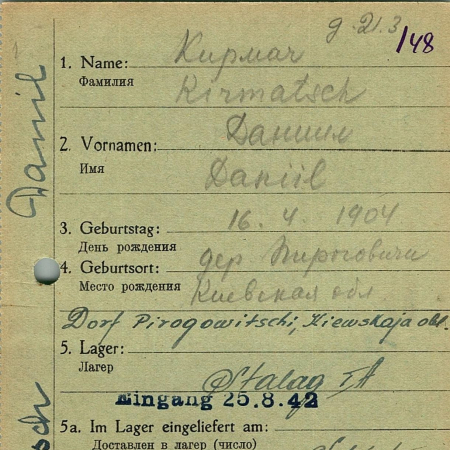 д. 21.3
/148
1. Name: Кирмач
Фамилия Kirmatsch
2. Vornamen: Даниил
Имя Daniil
3. Geburtstag: 16. 4. 1904
День рождения
4. Geburtsort: дер Пироговичи
Место рождения Киевская обл
Dorf Pirogowitschi, Kiewskaja obl.
5. Lager: Stalag IA
Лагерь
Eingang 25.8.42
5a. Im Lager eingeliefert am:
Доставлен в лагер (число)
Daniil